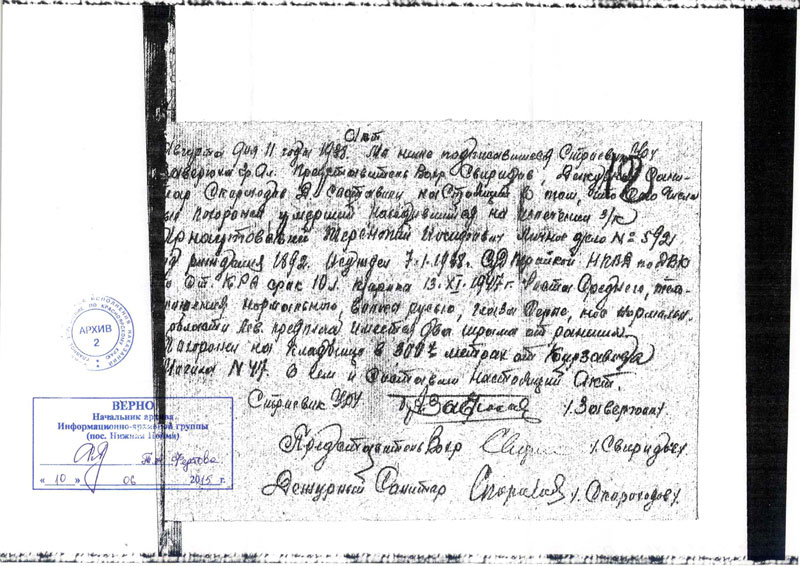 Акт
Августа дня 11 года 1938. Мы ниже подписавшиеся
Представитель Вохр Свиридов, Дежурный Сани-
тар Скороходов составили настоящий в том, что сего числа
был похоронен умерший находившийся на излечении з/к
Арнаутовский Терентий личное дело № 5921
рождения 1892. Осужден 7.1.1938. Тройкой НКВД по ДВК
по ст. КРА срок 10 л. 13.XI.1947 г. Роста Среднего, тело-
сложения нормального, волоса русые, глаза Серые, нос нормальн.
В области лев. имеется два шрама от ранения.
Похоронен на кладбище в 300х метрах от Кирзавода
Могила N 47. О чем и составлен настоящий Акт.
/Заверюха/
Представитель Вохр /Свиридов/
Дежурный Санитар /Скороходов/
АРХИВ
2
ВЕРНО
Начальник архива
Информационно-архивной группы
(пос. Нижняя Пойма)
« 10 » 06 2015 г.